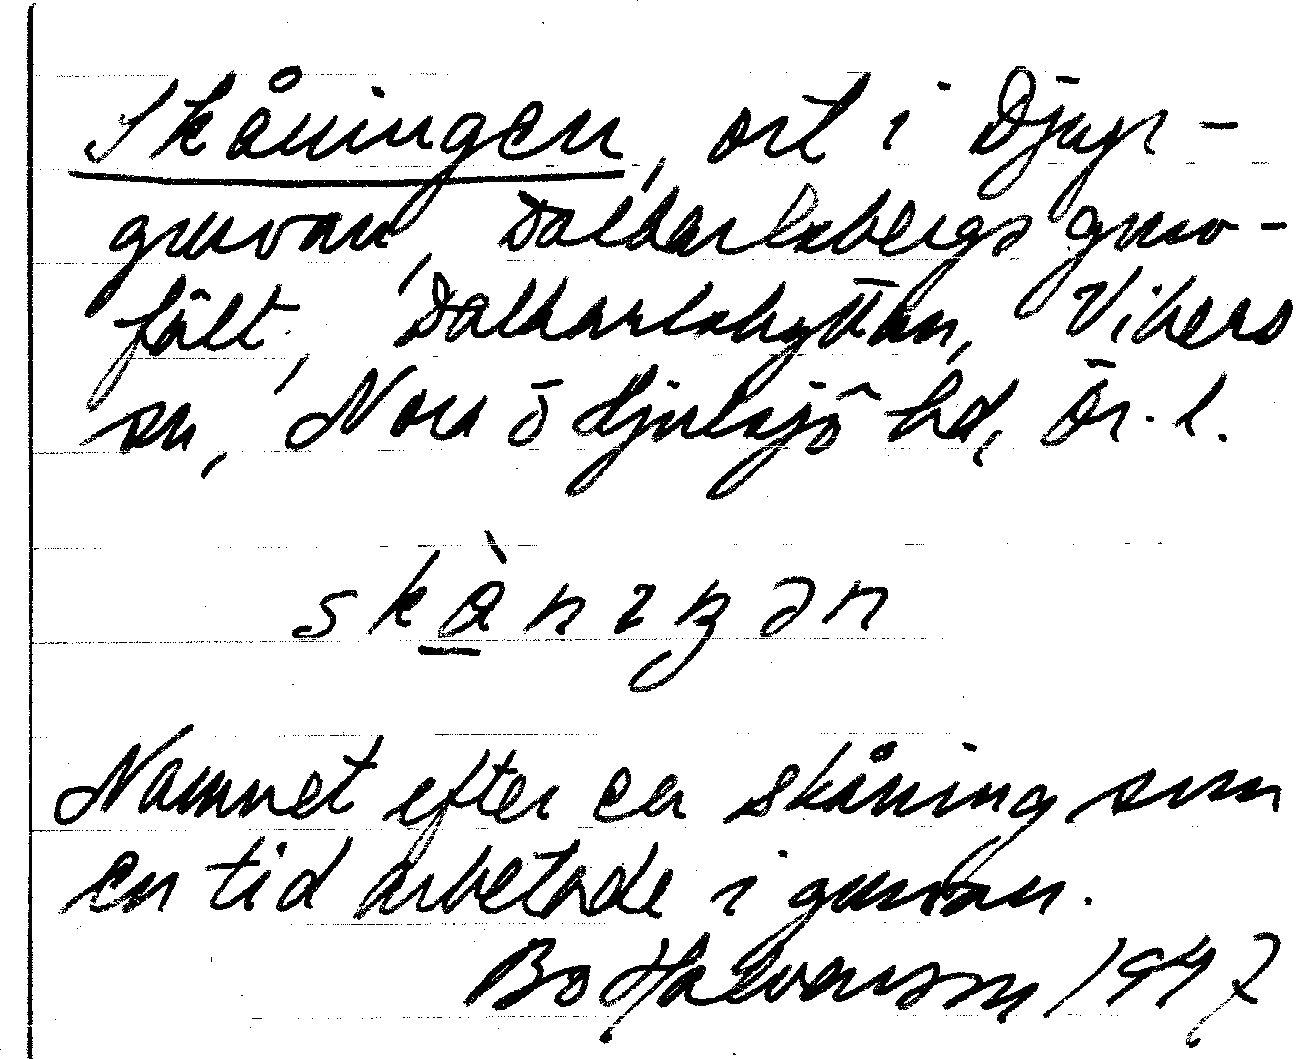 Skåningen, ort i Djup-
gruvan, Dalkarlsbergs gruv-
fält, Dalkarlshyttan, Vikers
sn, Nora ö Hjulsjö hd, Ör. l.
skå̀nıŋən
Namnet efter en skåning som
en tid arbetade i gruvan.
Bo Halvarsson 1947